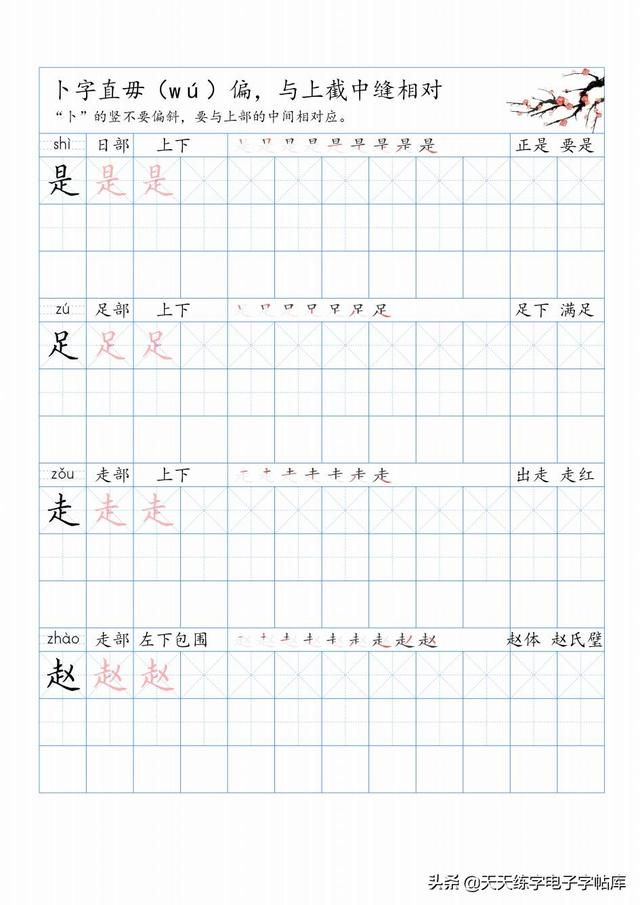 卜字直毋（wú）偏，与上截中缝相对
“卜”的竖不要偏斜，要与上部的中间相对应。
shì 日部 上下 正是 要是
是 是 是
zú 足部 上下 足下 满足
足 足 足
zǒu 走部 上下 出走 走红
走 走 走
zhào 走部 左下包围 赵体 赵氏璧
赵 赵 赵
头条 @天天练字电子字帖库